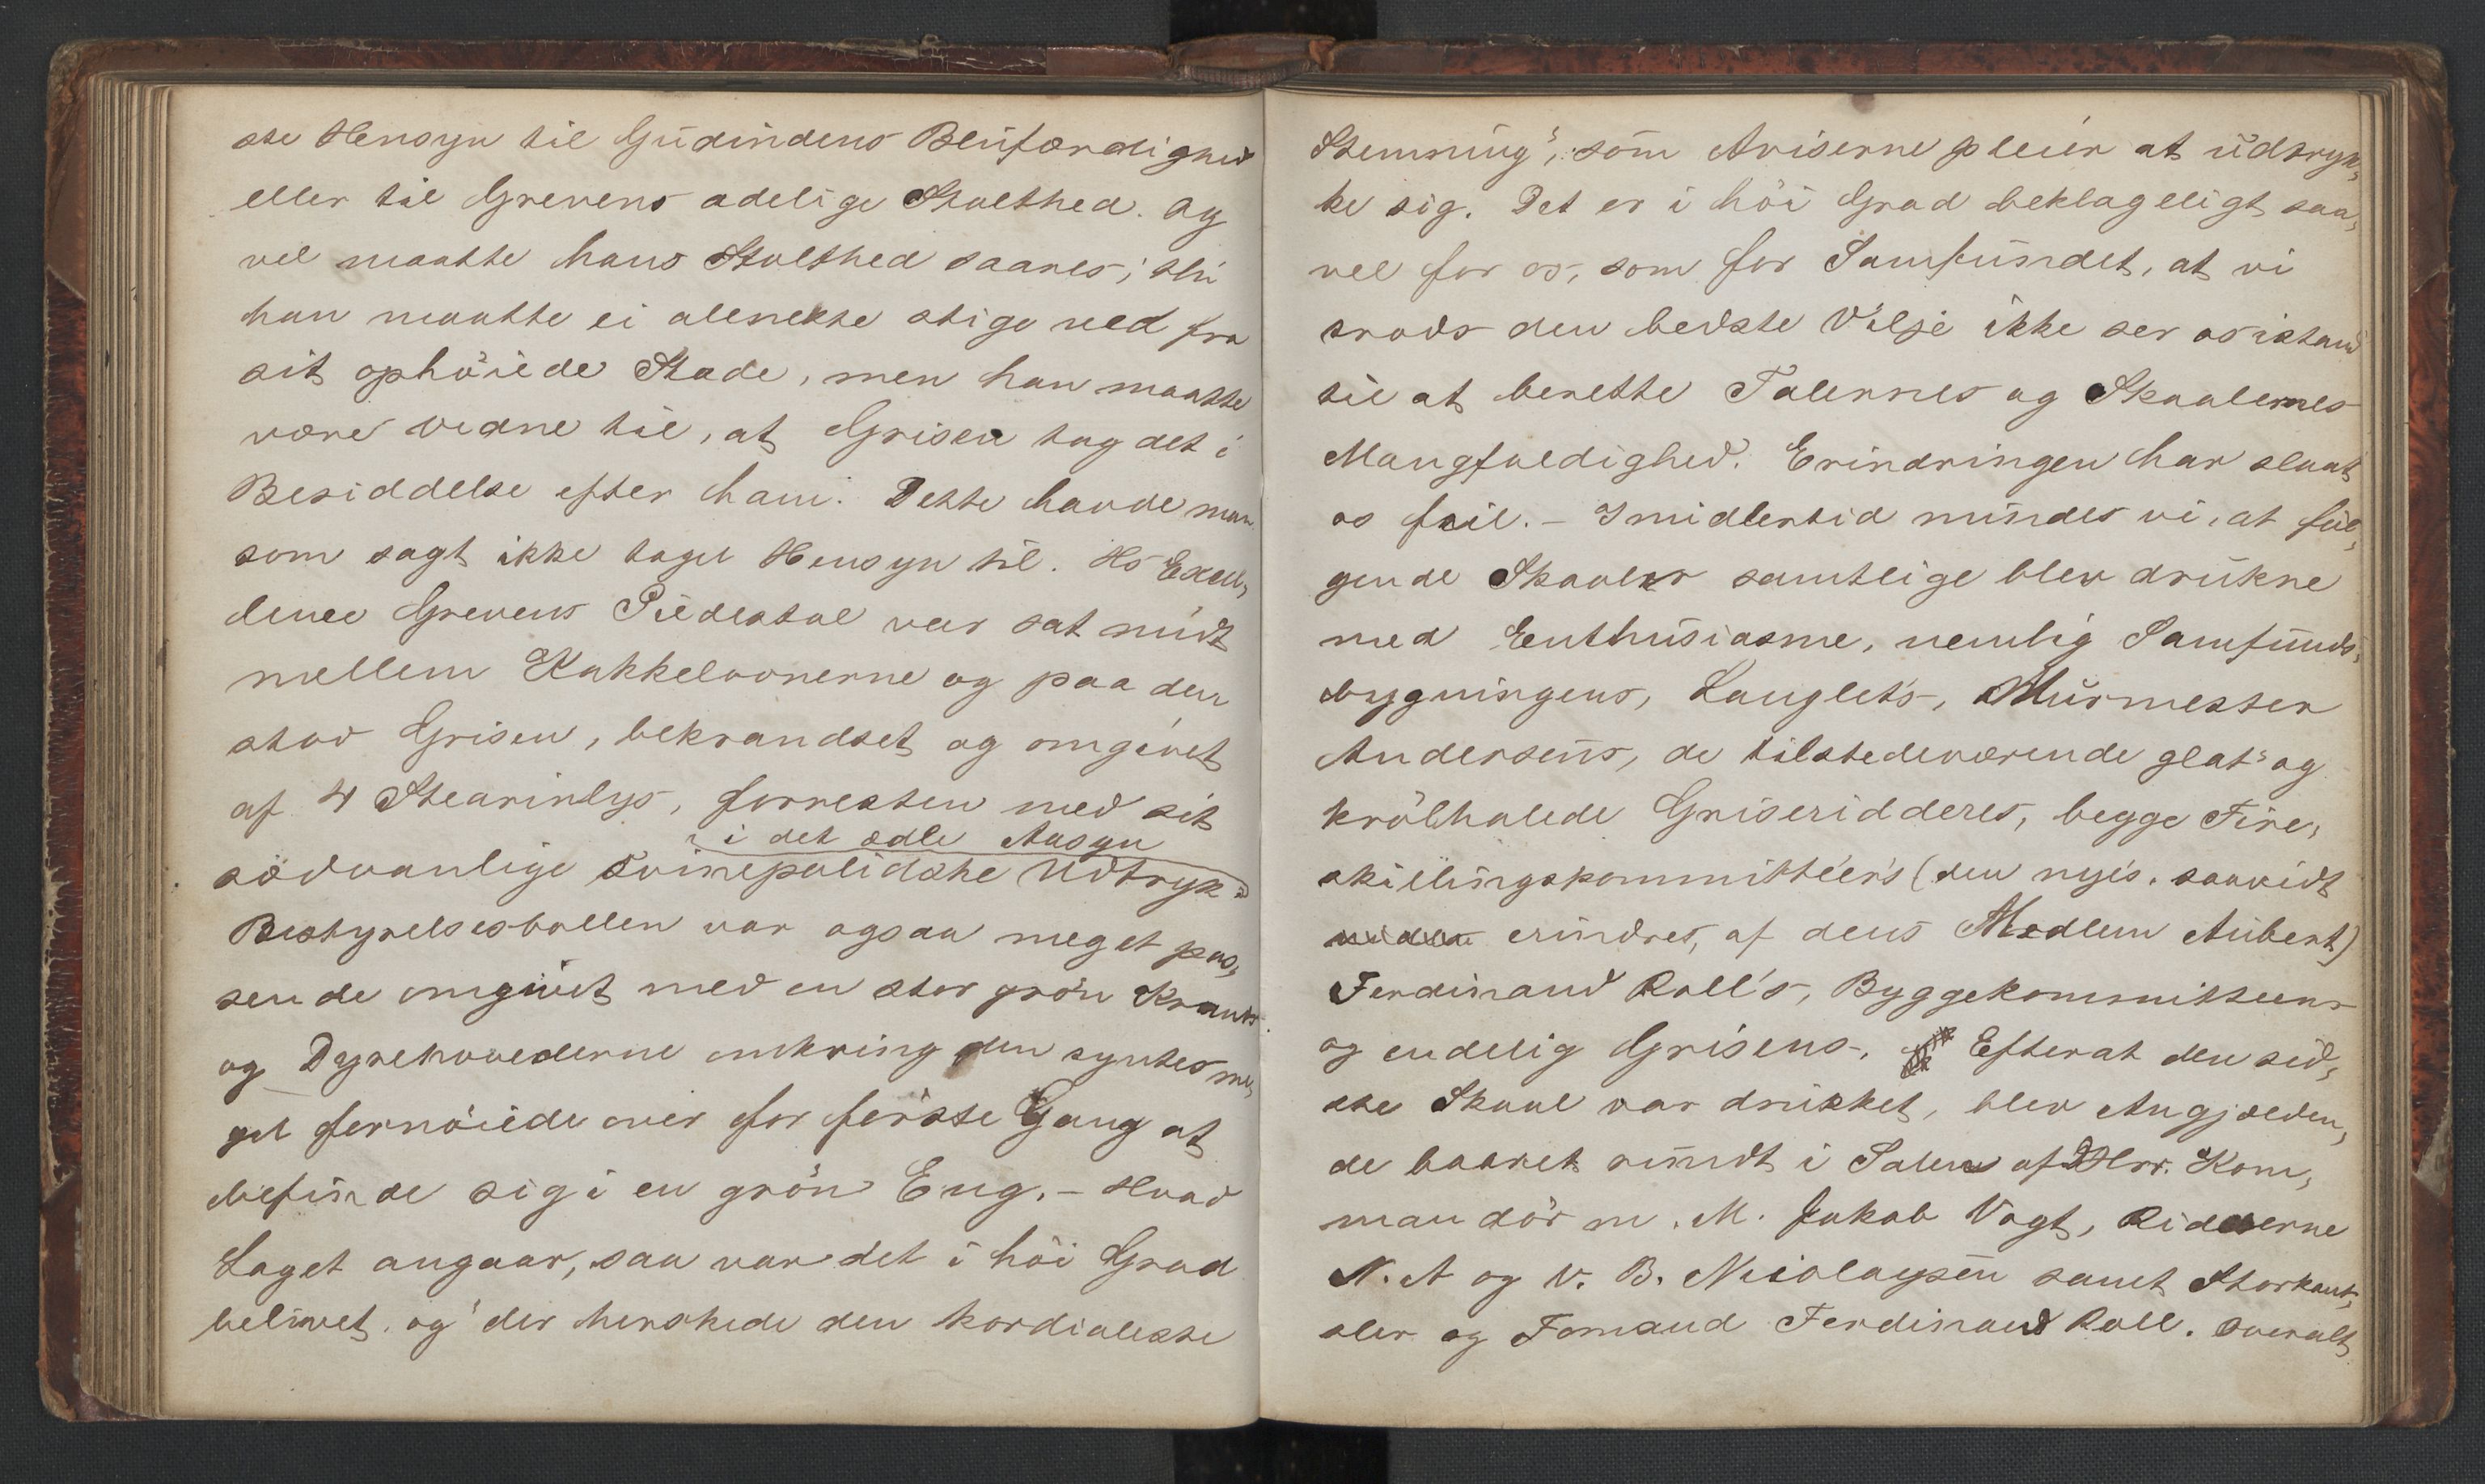 ste Hensyn til Gudindens Blufærdighed
eller til Grevens adelige Stolthed. Og
vel maatte hans Stolthed saares; thi
han maatte ei alenekte stige ned fra
sit ophöiede Stade, men han maatte
være Vidne til, at Grisen tog det i
Besiddelse efter ham. Dette havde man
som sagt ikke taget Hensyn til. Hs Excel,
lence Grevens Piedestal var sat midt
mellem Kakkelovnerne og paa den
stod Grisen, bekrandset og omgivet
af 4 Stearinlys, forresten med sit
i det ædle Aasyn
sædvanlige svinepolidske Udtryk
Bestyrelsesbollen var ogsaa meget pas,
sende omgivet med en stor grön Krands
og Dyrehovederne omkring den syntes me,
get fornöiede over for förste Gang at
befinde sig i en grön Eng. – Hvad
Laget angaar, saa var det i höi Grad
belivet, og "der herskede den kordialeste
Stemning", som Aviserne pleier at udtryk,
ke sig. Det er i höi Grad beklageligt saa,
vel for os, som for Samfundet, at vi
trods den bedste Vilje ikke ser os istand
til at berette Talernes og Skaalernes
Mangfoldighed. Erindringen har slaaet
os feil. – Imidlertid mindes vi, at föl,
gende Skaaler samtlige blev drukne
med Eenthusiasme, nemlig Samfunds,
bygningens, Langlets, Murmester
Andersens, de tilstedeværende glat- og
krölhalede Griseridderes, begge Fire,
skillingskommittéer's (den nyes, saavidt
erindres, af dens Medlem Aubert)
Ferdinand Roll's, Byggekommitteens
og endelig Grisens. Efterat den sid,
ste Skaal var drukket, blev Angjælden,
de baaret rundt i Salen af Hrr. Kom,
mandör m. M. Jakob Vogt, Ridderne
N. A og V. B. Nicolaysen samt Storkants,
sler og Formand Ferdinand Roll. Overalt